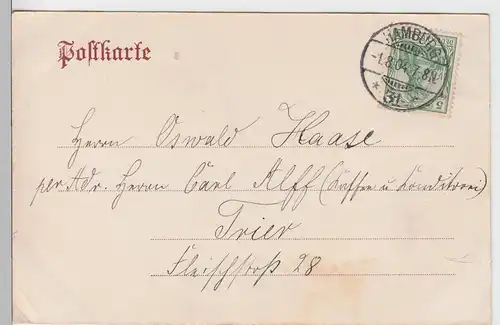 Postkarte
HAMBURG
-1.8.04. 7-8N
* 31
5
Herrn Oswald Haase
per Adr. Herrn Carl Alff (Kaffee u Konditorei)
Trier
Fleischstraß 28